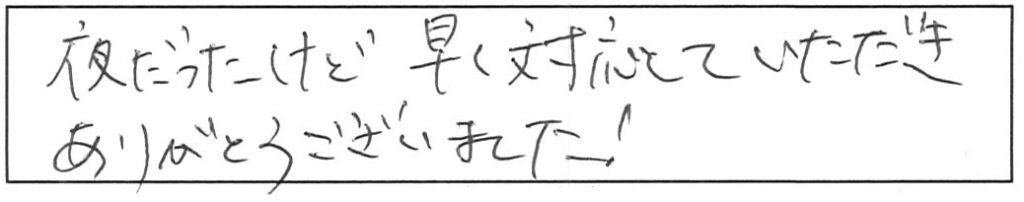 夜だったけど 早く対応していただき
ありがとうございました!